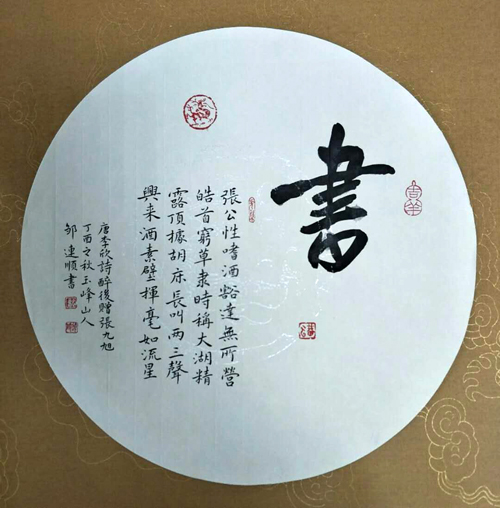 書
張公性嗜酒豁達無所營
皓首窮草隶時稱大湖精
露頂據胡床長叫兩三聲
興来洒素壁揮毫如流星
唐李欣詩醉後贈張九旭
丁酉之秋玉峰山人
邹連順書